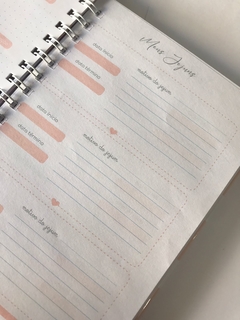 Meus Jejuns
data início
data término
motivo do jejum
data início
data término
motivo do jejum
motivo do jejum